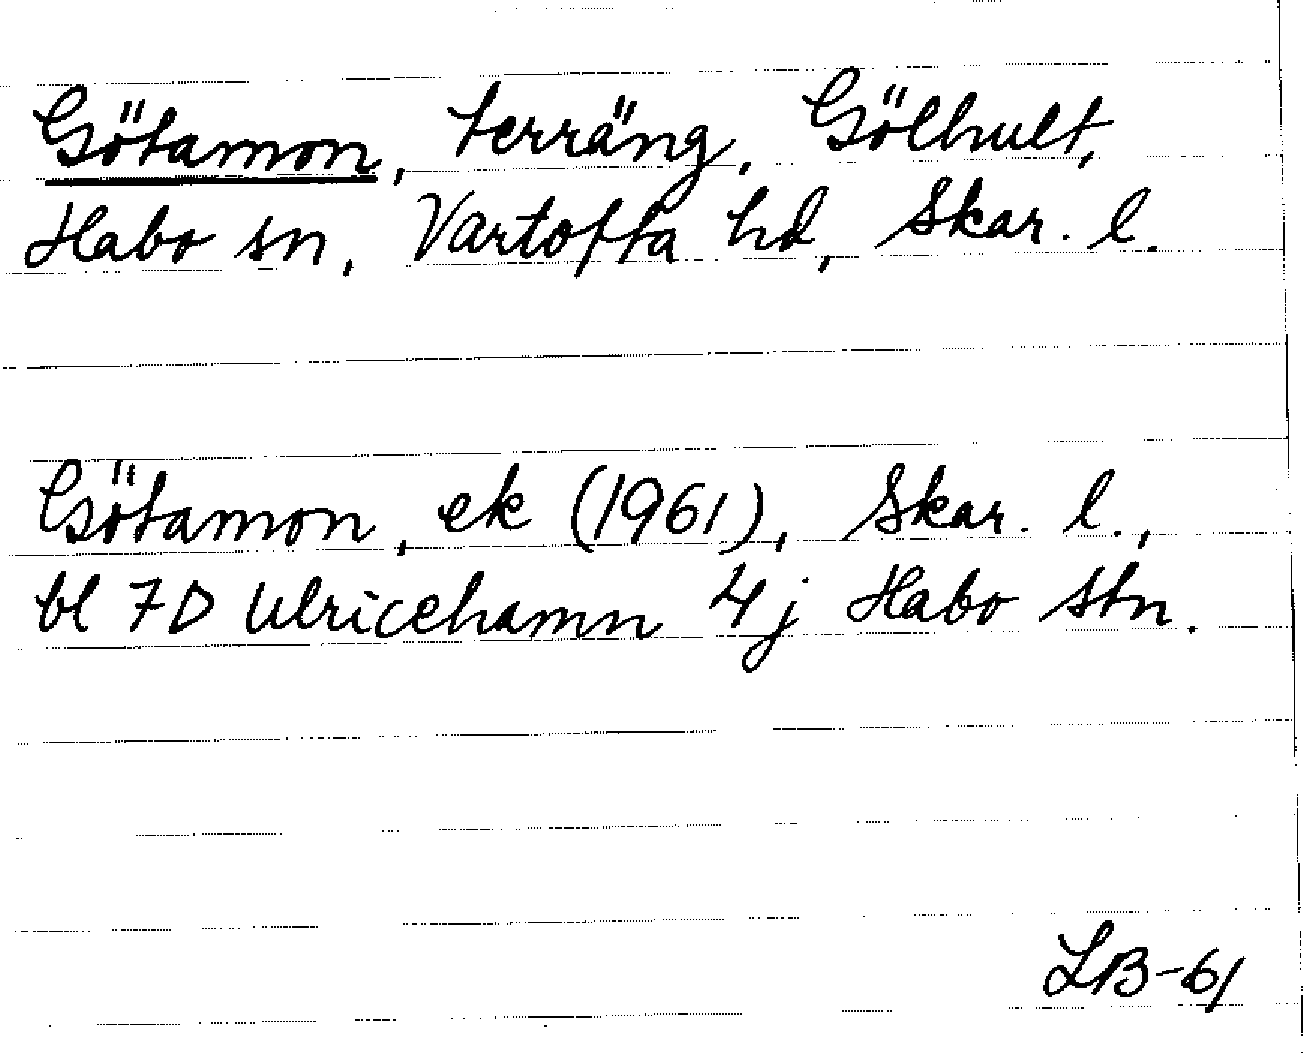 Götamon, terräng, Gölhult,
Habo sn, Vartofta hd, Skar. l.
Götamon, ek (1961), Skar. l.,
bl 7D Ulricehamn 4j Habo stn.
LB-61